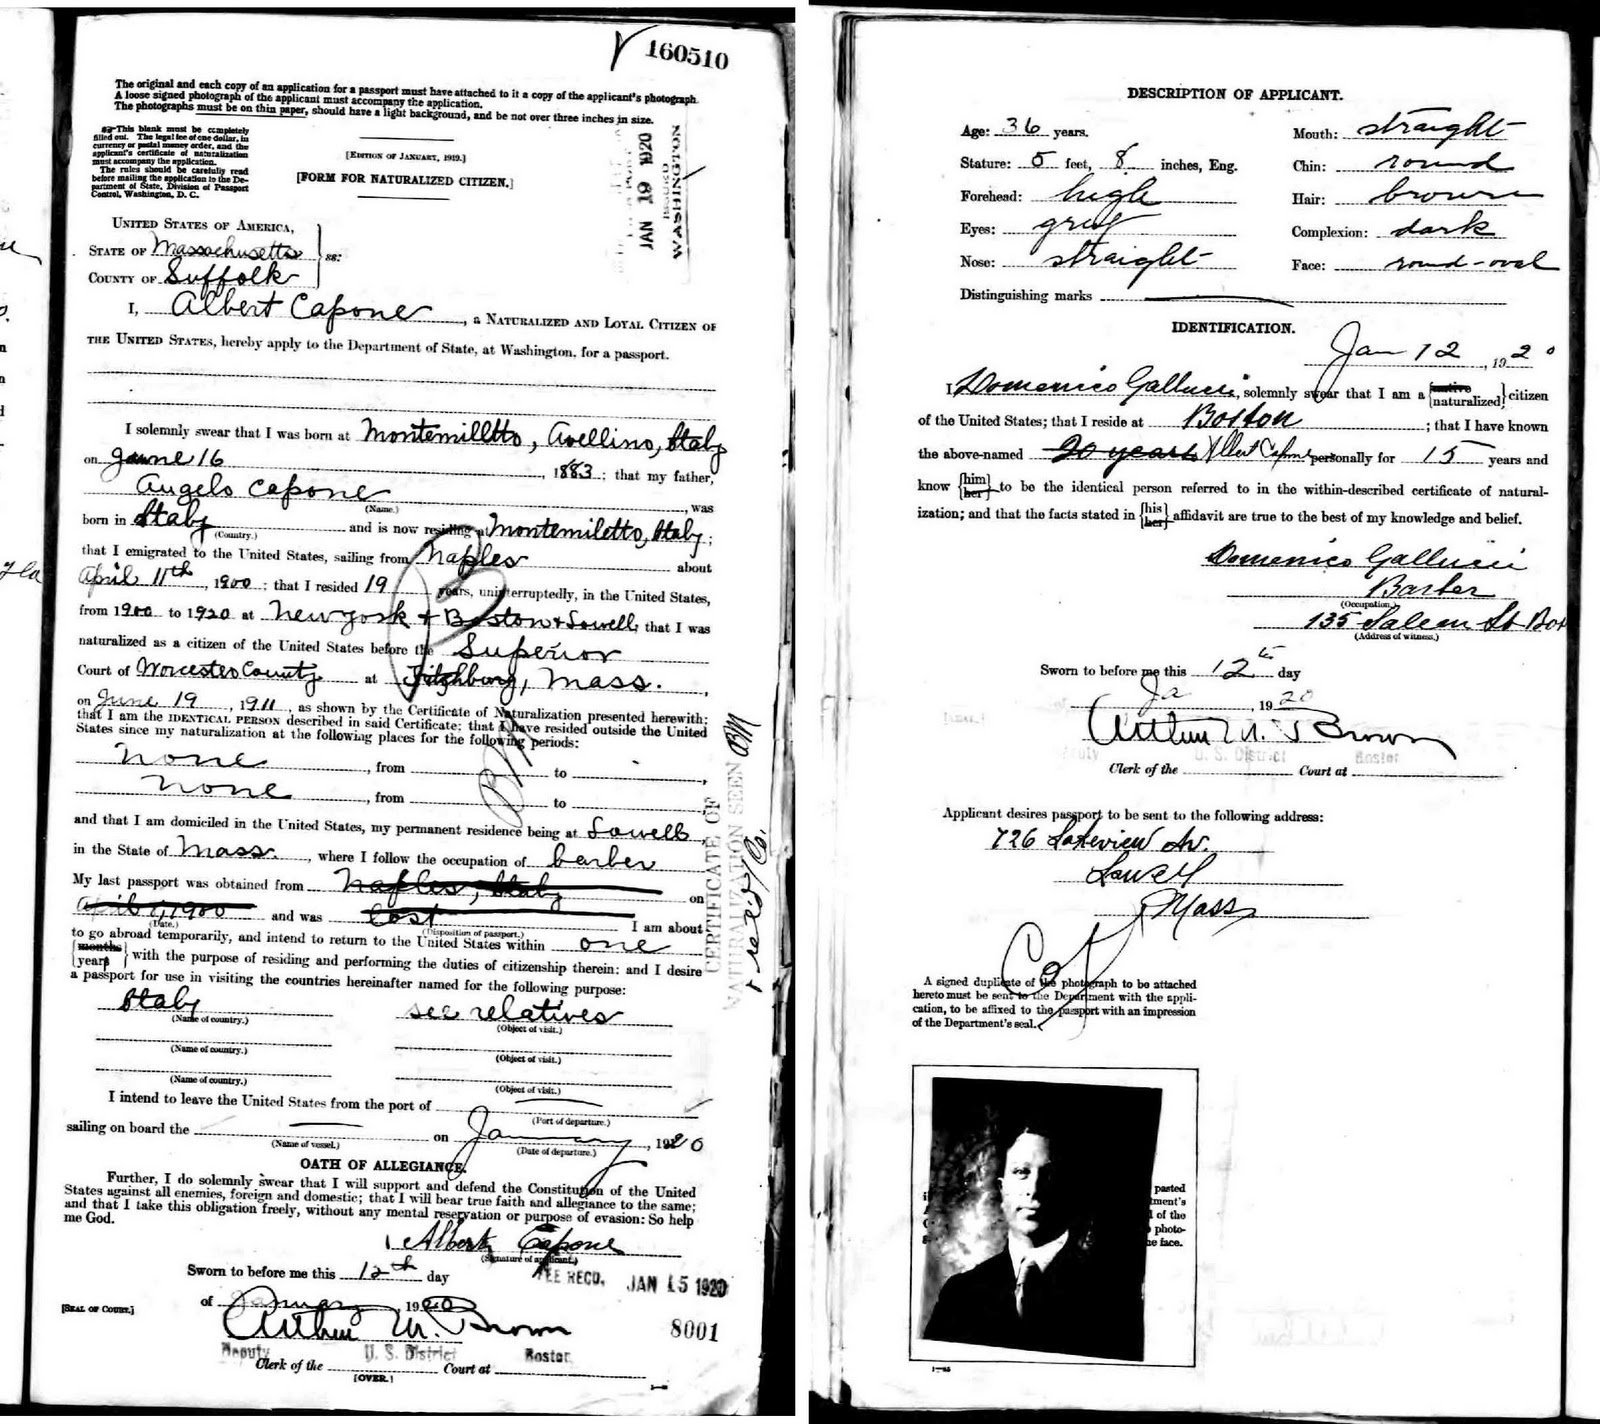 160510
The original and each copy of an application for a passport must have attached to it a copy of the applicant's photograph.
A loose signed photograph of the applicant must accompany the application.
The photographs must be on thin paper, should have a light background, and be not over three inches in size.
This blank must be completely
filled out. The legal fee of one dollar, in
currency or postal money order, and the
applicant's certificate of naturalization
must accompany the application.
The rules should be carefully read
before mailing the application to the De-
partment of State, Division of Passport
Control, Washington, D. C.
[EDITION OF JANUARY, 1919.]
[FORM FOR NATURALIZED CITIZEN.]
JAN 19 1920
ISSUED
WASHINGTON
UNITED STATES OF AMERICA,
STATE OF Massachusetts
ss:
COUNTY OF Suffolk
I, Albert Capone, a NATURALIZED AND LOYAL CITIZEN OF
THE UNITED STATES, hereby apply to the Department of State, at Washington, for a passport.
I solemnly swear that I was born at Montemilletto, Avellino, Italy
on June 16, 1883; that my father,
Angelo Capone, was
(Name.)
born in Italy and is now residing at Montemiletto, Italy;
(Country.)
that I emigrated to the United States, sailing from Naples about
April 11th, 1900; that I resided 19 years, uninterruptedly, in the United States,
from 1900 to 1920 at New York + Boston + Lowell; that I was
naturalized as a citizen of the United States before the Superior
Court of Worcester County at Fitchburg, Mass.,
on June 19, 1911, as shown by the Certificate of Naturalization presented herewith;
that I am the IDENTICAL PERSON described in said Certificate; that I have resided outside the United
States since my naturalization at the following places for the following periods:
none, from to ,
none, from to ,
and that I am domiciled in the United States, my permanent residence being at Lowell,
in the State of Mass., where I follow the occupation of barber
My last passport was obtained from Naples, Italy on
April 8, 1900 and was Lost I am about
(Date.) (Disposition of passport.)
to go abroad temporarily, and intend to return to the United States within one
{months
years} with the purpose of residing and performing the duties of citizenship therein; and I desire
a passport for use in visiting the countries hereinafter named for the following purpose:
Italy see relatives
(Name of country.) (Object of visit.)
(Name of country.) (Object of visit.)
(Name of country.) (Object of visit.)
I intend to leave the United States from the port of
(Port of departure.)
sailing on board the on January, 1920
(Name of vessel.) (Date of departure.)
OATH OF ALLEGIANCE.
Further, I do solemnly swear that I will support and defend the Constitution of the United
States against all enemies, foreign and domestic; that I will bear true faith and allegiance to the same;
and that I take this obligation freely, without any mental reservation or purpose of evasion: So help
me God.
Albert Capone
(Signature of applicant.)
Sworn to before me this 12th day
FEE RECD. JAN 15 1920
of January, 1920
[SEAL OF COURT.]
Arthur M. Brown
8001
Deputy U. S. District Boston
Clerk of the Court at
[OVER.]
CERTIFICATE OF
NATURALIZATION SEEN
DESCRIPTION OF APPLICANT.
Age: 36 years. Mouth: straight
Stature: 5 feet, 8 inches, Eng. Chin: round
Forehead: high Hair: brown
Eyes: grey Complexion: dark
Nose: straight Face: round-oval
Distinguishing marks
IDENTIFICATION.
Jan 12, 1920
I, Domenico Gallucci, solemnly swear that I am a {native
naturalized} citizen
of the United States; that I reside at Boston; that I have known
the above-named 20 years Albert Capone personally for 15 years and
know {him
her} to be the identical person referred to in the within-described certificate of natural-
ization; and that the facts stated in {his
her} affidavit are true to the best of my knowledge and belief.
Domenico Gallucci
Barber
(Occupation.)
135 Salem St Bos
(Address of witness.)
Sworn to before me this 12th day
Ja, 1920
Arthur M. Brown
Deputy U. S. District Boston
Clerk of the Court at
Applicant desires passport to be sent to the following address:
726 Lakeview Av.
Lowell
Mass
A signed duplicate of the photograph to be attached
hereto must be sent to the Department with the appli-
cation, to be affixed to the passport with an impression
of the Department's seal.
pasted
tment's
l of the
photo-
he face.